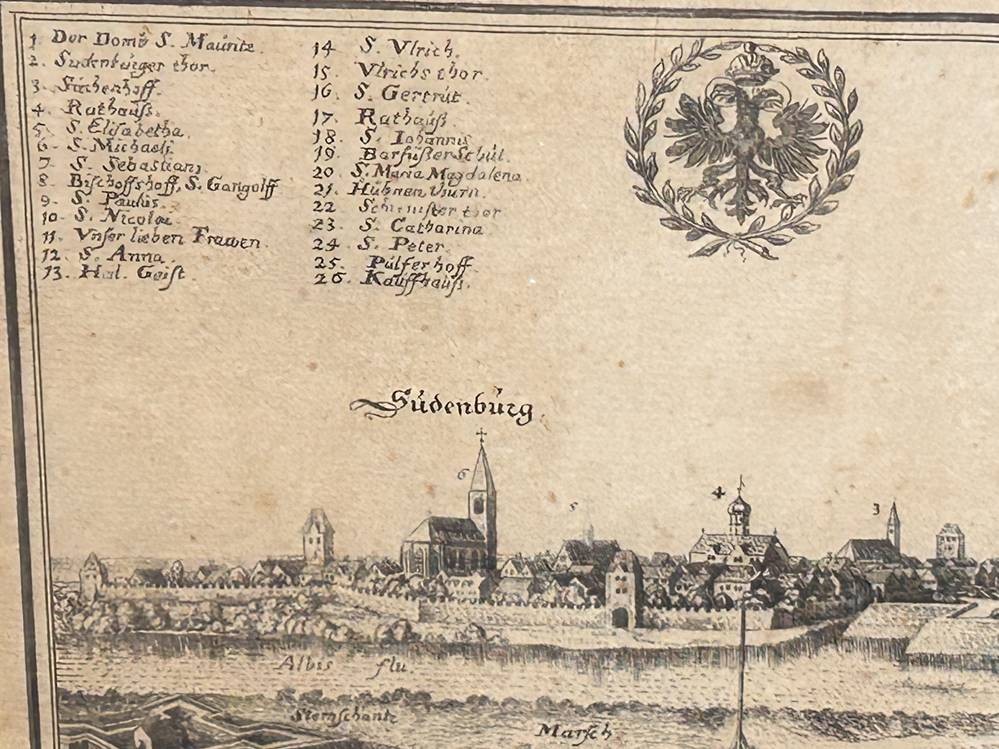 1 Der Domb S. Mauritz.
2. Sudenburger thor.
3. Siechenhoff.
4. Rathauß.
5. S. Elisabetha.
6. S. Michaeli
7. S. Sebastiani
8. Bischoffshoff, S. Gangolff
9. S. Paulus.
10. S. Nicolai
11. Vnser lieben Frawen.
12. S. Anna.
13. Hal. Geist
14 S. Vlrich.
15. Vlrichs thor.
16. S. Gertrut.
17. Rathauß.
18. S. Iohannis
19. Barfüßer Schül.
20 S. Maria Magdalena
21. Hühnen thurn.
22 thor
23. S. Catharina
24. S. Peter.
25. Pülfer hoff.
26. Kauffhauß.
Südenbürg.
6
5
4
3
Albis flu.
Sternschantz
Marsch